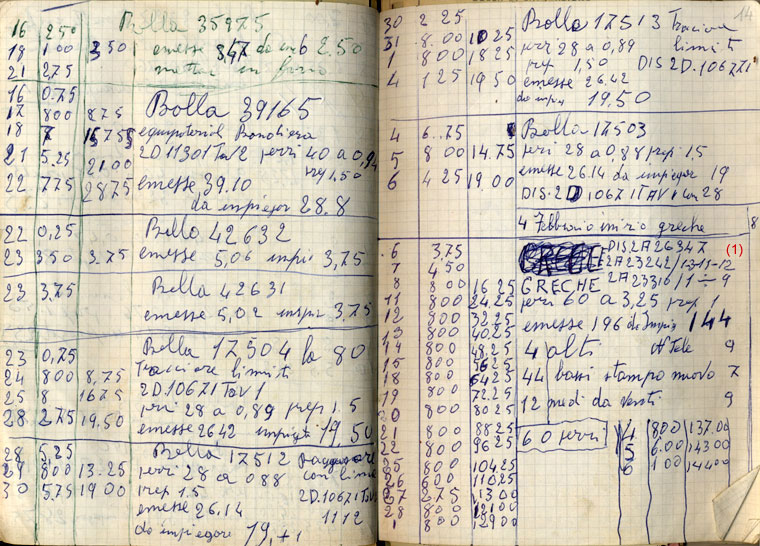 16 2 50 Bolla 35975
18 1 00 3 50 emesse 3,47 da im 6 2.50
21 2 75
16 0.75
17 8 00 8 75 Bolla 39165
18 7 15 75 equipotenziali Bandiera
21 5.25 21.00 2D11301 Tav 2 pezzi 40 a 0,94
prep 1,50
22 7 75 28 75 emesse 39.10
da impiegar 28.8
22 0,25 Bolla 42632
23 3 50 3,75 emesse 5,06 impi 3,75
23 3,75 Bolla 42631
emesse 5,02 impi 3,75
23 0,75 Bolla 17504 80
24 8 00 8,75 Tracciare limiti
25 8 16 75 2D.10671 Tav 1
28 2 75 19,50 pezzi 28 a 0,89 prep 1,5
emesse 26 42 19,50
28 5,25 Bolla 17512
29 8 00 13.25 pezzi 28 a 0 88 con lime
30 5,75 19 00 prep 1.5 2D.10671 Tav 1
emesse 26.14 11 12
da impiegare 19,+1
30 2 25 Bolla 17513 Tracciare 14
31 8.00 10 25 pezzi 28 a 0,89 limiti
1 8 00 18 25 prep 1,50 DIS 2D.10671
4 1 25 19 50 emesse 26.42
da impi 19,50
4 6.75 Bolla 17503
5 8 00 14.75 pezzi 28 a 0,88 prep 1.5
6 4 25 19 00 emesse 26.14 da impiegar 19
DIS.2D.10671 TAV 1 con 28
4 Febbraio inizio greche 8
6 3,75 DIS 2A 26347 (1)
7 4,50 2A 23242/1-3-11-12
8 8 00 16 25 GRECHE 2A 23316/1 9
11 8 00 24,25 pezzi 60 a 3,25 prep 1
12 8 00 32 25 emesse 196 da impi 144
13 8 00 40.25
14 8 00 48,25 4 alti N Tele 9
15 8 00 56 25 44 bassi stampo nuovo 7
18 8 00 64 25
19 8 00 72.25 12 medi da 9
20 8 00 80 25
21 8 00 88 25 60 pezzi 4 8 00 137.00
22 8 00 96 25 5 6.00 143 00
25 8 00 104 25 6 1 00 144 00
26 6 00 110 25
27 2 75 113 00
28 8 00 121 00
1 8 00 129 00